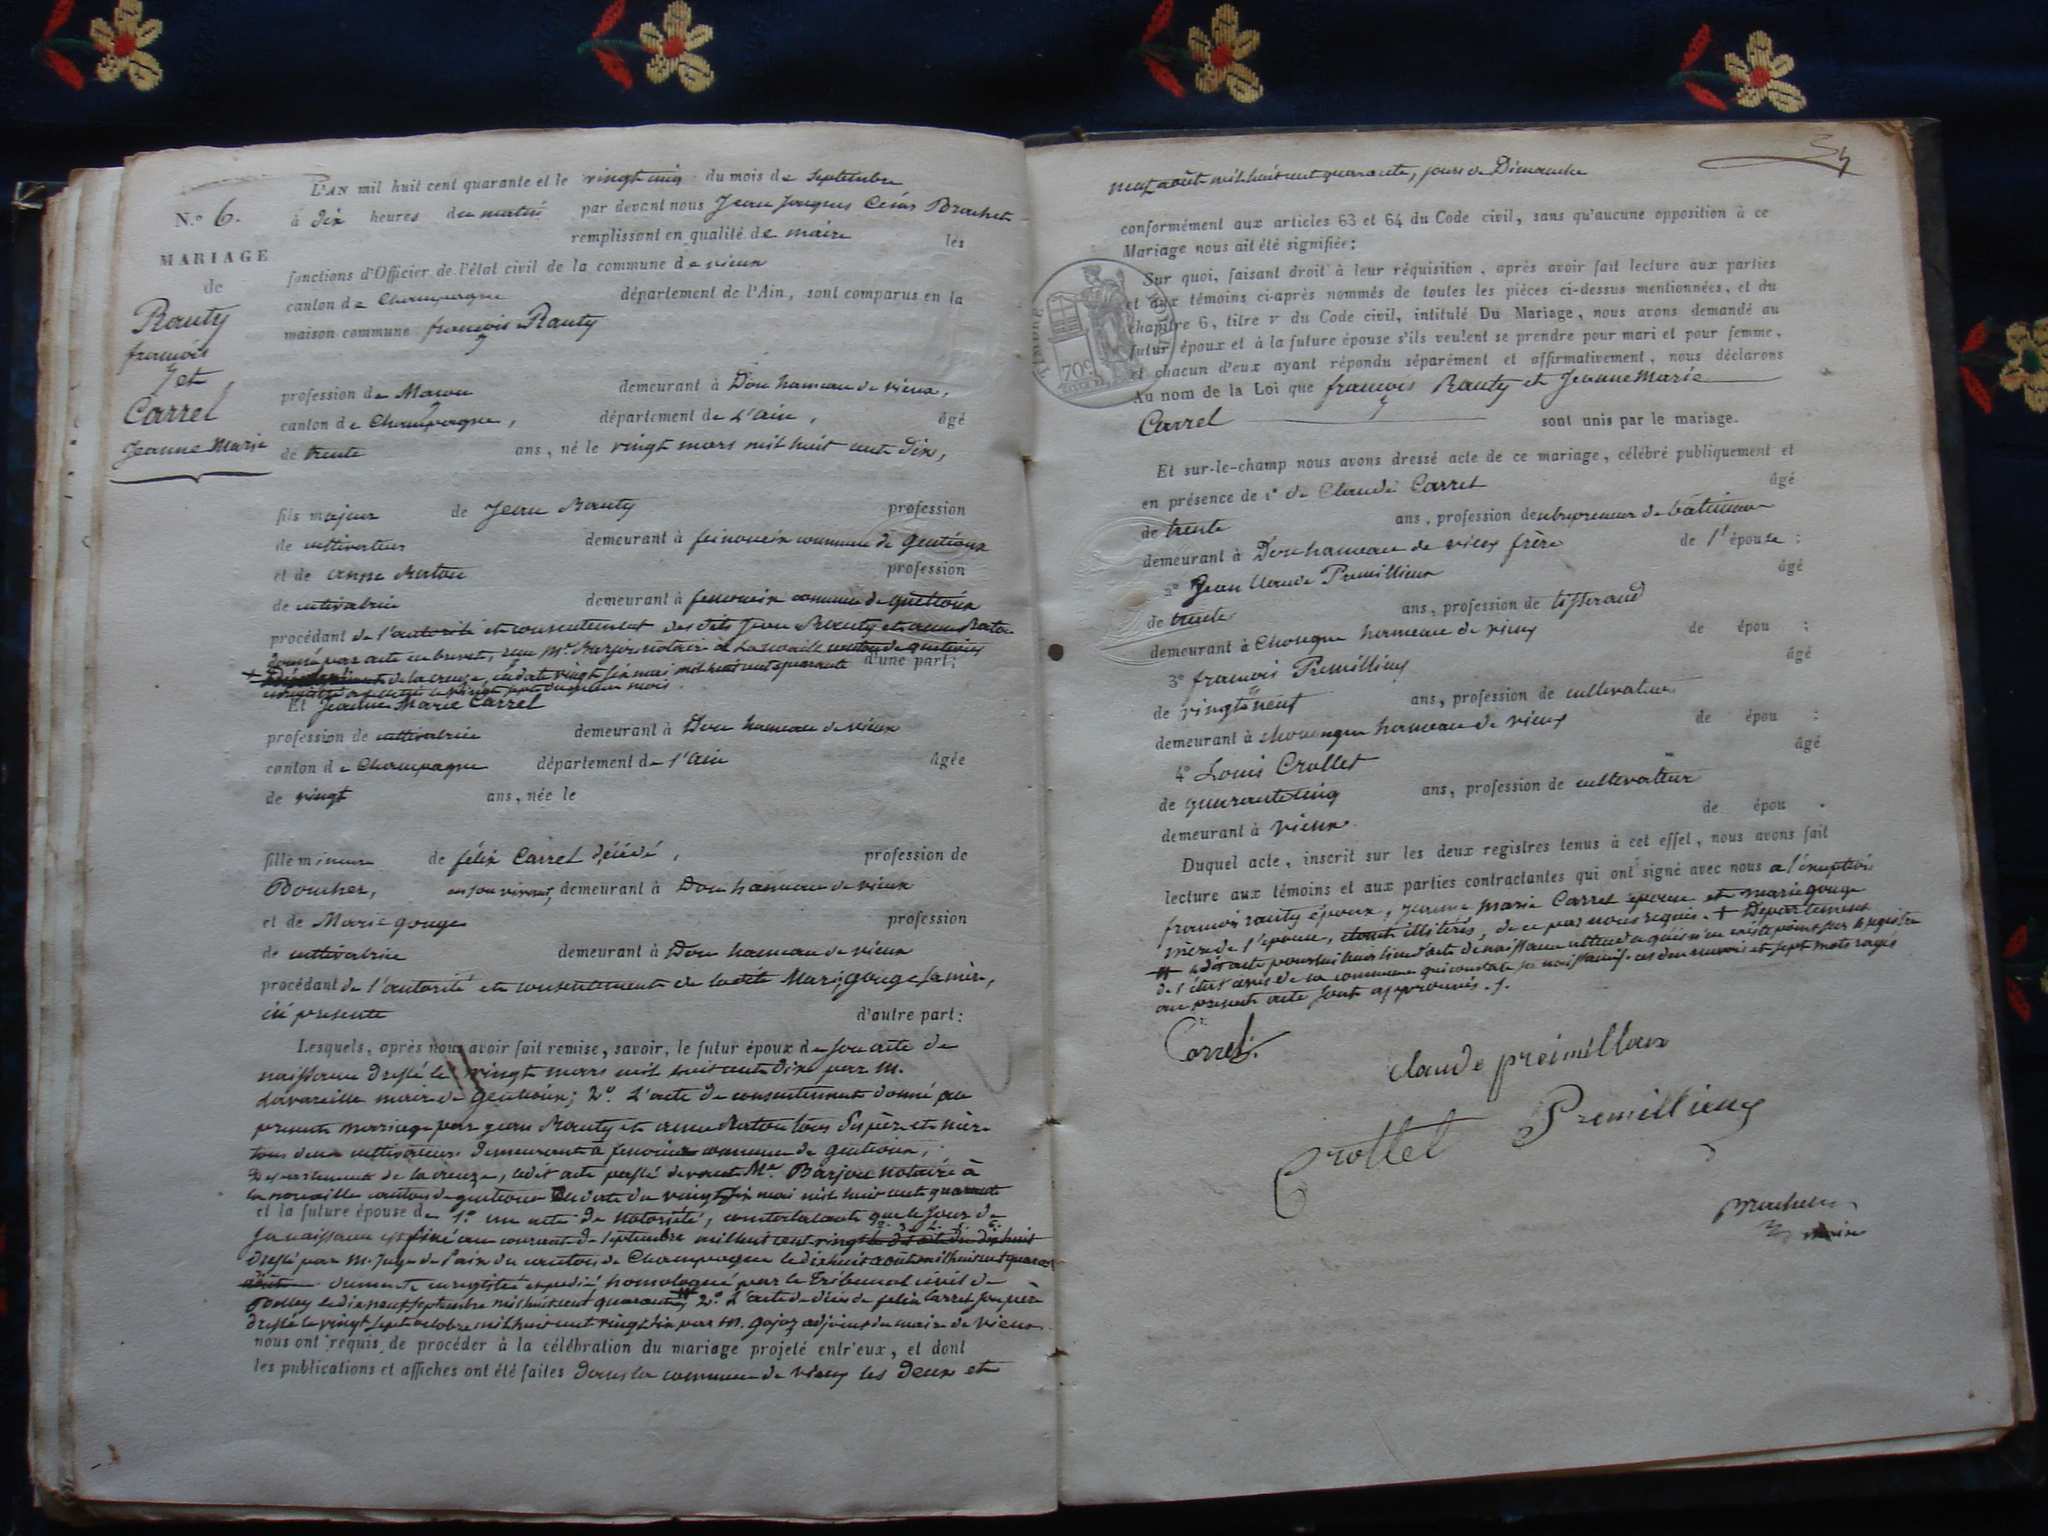 L'AN mil huit cent quarante et le vingt cinq du mois de Septembre
N.º 6.
à dix heures du matin par devant nous Jean Jacques César Brachet
remplissant en qualité de maire les
MARIAGE
de
Rauty
françois
et
Carrel
Jeanne Marie
fonctions d'Officier de l'état civil de la commune de vieux
canton de Champagne département de l'Ain, sont comparus en la
maison commune françois Rauty
profession de Macon demeurant à Don hameau de vieux,
canton de Champagne, département de L'ain, âgé
de trente ans, né le vingt mars mil huit cent dix,
fils majeur de Jean Rauty profession
de cultivateur demeurant à commune de gentioux
et de anne Raton profession
de cultivatrice demeurant à commune de gentioux
procédant de l'autorité et consentement des dits Jean Rauty et anne Raton
donné par acte en brevet, notaire à Lanouaille canton de gentioux
de la creuse, en date vingt six mai mil huit cent quarante d'une part;
Et Jeanne Marie Carrel
profession de cultivatrice demeurant à Don hameau de vieux
canton de Champagne département de l'ain âgée
de vingt ans, née le
fille mineure de félix Carrel décédé, profession de
Boucher, en son vivant, demeurant à Don hameau de vieux
et de Marie gouge profession
de cultivatrice demeurant à Don hameau de vieux
procédant de l'autorité et consentement de ladite Marie gouge sa mère,
ici présente d'autre part:
Lesquels, après nous avoir fait remise, savoir, le futur époux de son acte de
naissance dressé le vingt mars mil huit cent dix par M.
Lavareille maire de gentioux; 2º. L'acte de consentement donné au
présent mariage par jean Rauty et anne Raton tous ses père et mère
tous deux cultivateurs demeurant à commune de gentioux,
Departement de la creuze, ledit acte passé devant Me. Barjou notaire à
la nouaille canton de gentioux en date du vingt six mai mil huit cent quarante
et la future épouse de 1º. un acte de notoriété, constatant que le jour de
sa naissance est fixé au courant de septembre mil huit cent vingt
dressé par M. Juge de Paix du canton de Champagne le dix huit août mil huit cent quarante
dument enregistré expedié, homologué par le Tribunal civil de
Belley le dix neuf septembre mil huit cent quarante, 2º. L'acte de décès de félix Carrel son père
dressé le vingt sept octobre mil huit cent vingt six par M. gojoz adjoint du maire de vieux.
nous ont requis de procéder à la célébration du mariage projeté entr'eux, et dont
les publications et affiches ont été faites dans la commune de vieux les deux et
neuf août mil huit cent quarante, jours de Dimanche
conformément aux articles 63 et 64 du Code civil, sans qu'aucune opposition à ce
Mariage nous ait été signifiée;
Sur quoi, faisant droit à leur réquisition, après avoir fait lecture aux parties
et aux témoins ci-après nommés de toutes les pièces ci-dessus mentionnées, et du
chapitre 6, titre v du Code civil, intitulé Du Mariage, nous avons demandé au
futur époux et à la future épouse s'ils veulent se prendre pour mari et pour femme,
et chacun d'eux ayant répondu séparément et affirmativement, nous déclarons
TIMBRE ROYAL
70c
Au nom de la Loi que francois Rauty et Jeanne Marie
Carrel sont unis par le mariage.
Et sur-le-champ nous avons dressé acte de ce mariage, célébré publiquement et
en présence de 1º de Claude Carrel âgé
de trente ans, profession d'entrepreneur de bâtiment
demeurant à Don hameau de vieux frère de l'épouse;
2º Jean Claude Premillieux âgé
de trente ans, profession de tisserand
demeurant à Chongne hameau de vieux de épou ;
3º francois Premillieux âgé
de vingt neuf ans, profession de cultivateur
demeurant à chongne hameau de vieux de épou ;
4º Louis Crollet âgé
de quarante cinq ans, profession de cultivateur
demeurant à vieux de épou .
Duquel acte, inscrit sur les deux registres tenus à cet effet, nous avons fait
lecture aux témoins et aux parties contractantes qui ont signé avec nous a l'exception
francois rauty époux, jeanne marie Carrel épouse et marie gouge
mère de l'épouse, illitérés, de ce par nous requis. + Departement
ledit acte pour lui tenir lieu d'acte de naissance attendu qu'il n'en existe point sur le registre
de l'état civil de la commune qui constate sa naissance. et sept mots rayés
au présent acte sont approuvés.
Carrel.
claude preimillaux
Crollet Premillieux
Brachet
maire